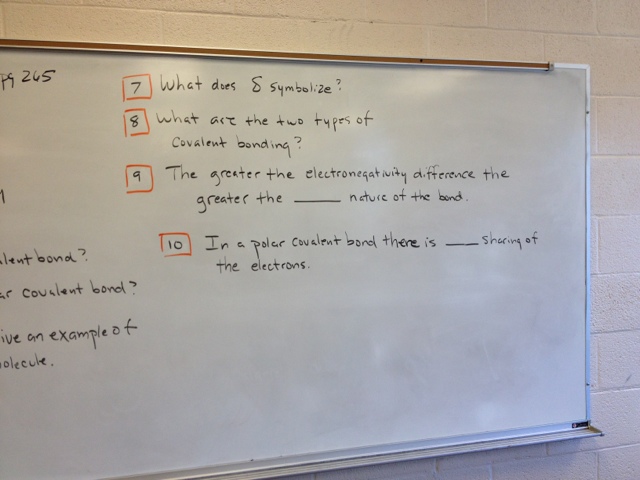 pg 265
7 What does δ symbolize?
8 What are the two types of
covalent bonding?
9 The greater the electronegativity difference the
greater the ____ nature of the bond.
10 In a polar covalent bond there is ____ sharing of
the electrons.
bond?
covalent bond?
an example of